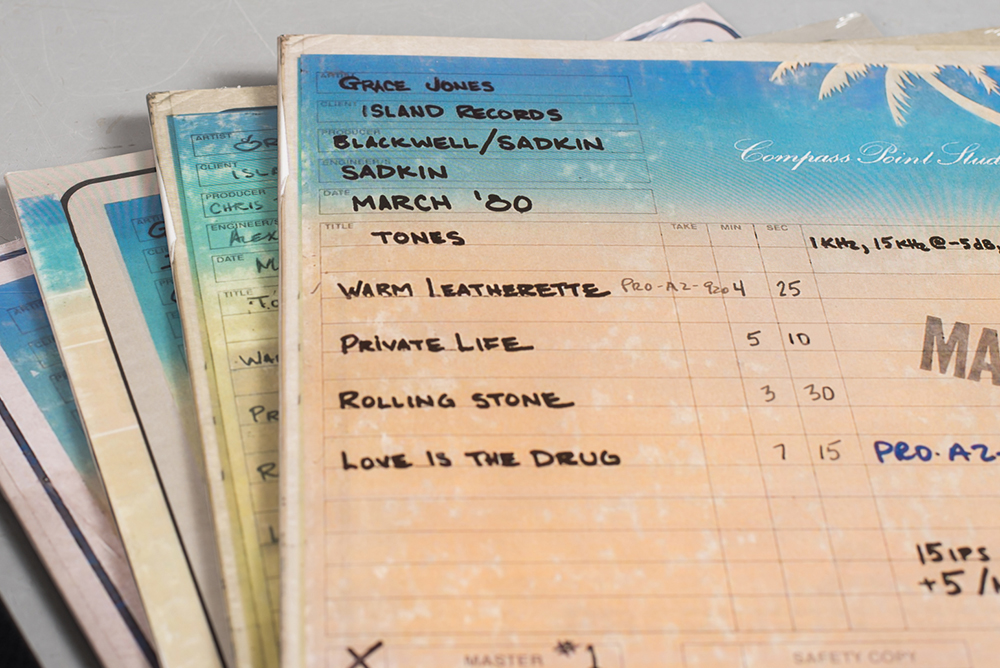 ARTIST GRACE JONES
CLIENT ISLAND RECORDS
PRODUCER BLACKWELL/SADKIN
ENGINEER/S SADKIN
DATE MARCH '80
Compass Point
TITLE TAKE MIN SEC
TONES 1KHz, 15KHz @ -5dB,
WARM LEATHERETTE PRO-A2-920 4 25
PRIVATE LIFE 5 10
ROLLING STONE 3 30
LOVE IS THE DRUG 7 15 PRO-A2-
15 IPS
+5 /
X MASTER #1 SAFETY COPY
ARTIST
CLIENT
PRODUCER CHRIS
DATE
TITLE